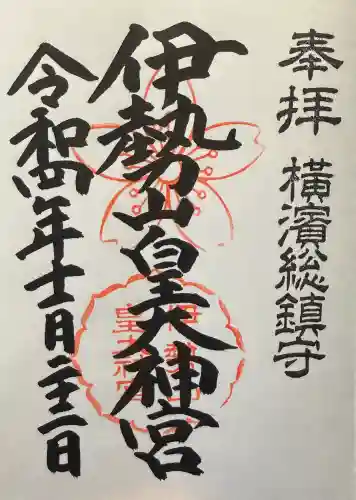 奉拝
横濱総鎮守
伊勢山皇大神宮
伊勢山
皇大神宮
令和四年十一月二十三日